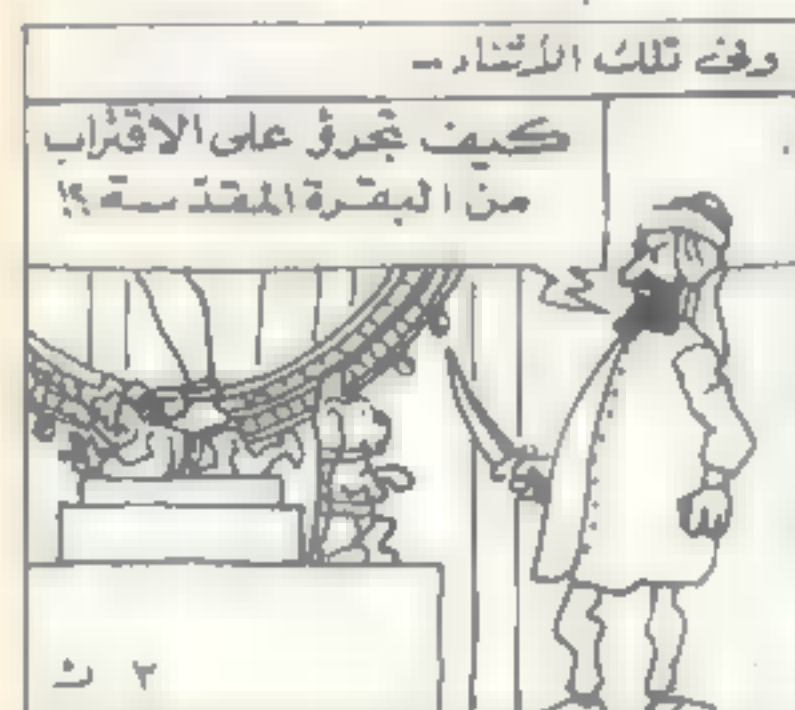 وفى تلك الأثناء -
كيف تجرؤ على الاقتراب
من البقرة المقدسة ؟!
٢ ث